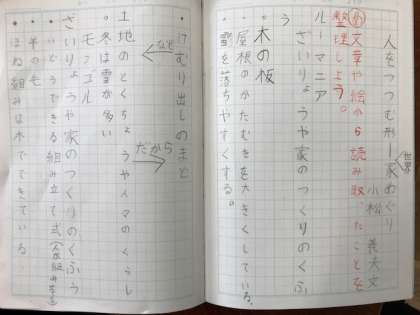 人をつつむ形ー家めぐり
世界
小松 義夫 文
文章や絵から読み取ったことを
整理しよう。
ルーマニア
ざいりょうや家のつくりのくふ
う
・木の板
・屋根のかたむきを大きくしている。
・雪を落ちやすくする。
・けむり出しのまど
なぜ
だから
土地のとくちょうや人々のくらし
・冬は雪が多い
モンゴル
ざいりょうや家のつくりのくふう
・いどうできる組み立て式
・羊の毛
・ほね組みは木でできている。